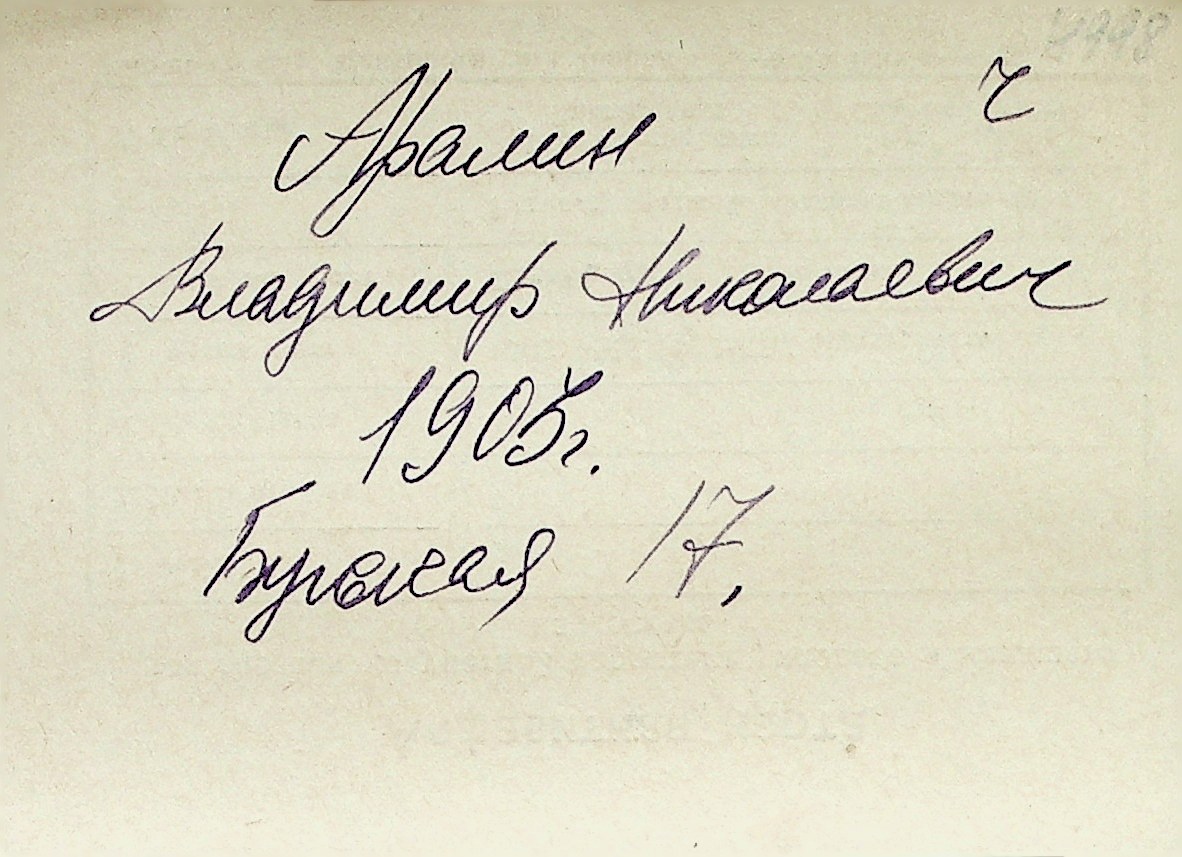 ч
Арамин
Владимир Николаевич
1905г.
17,